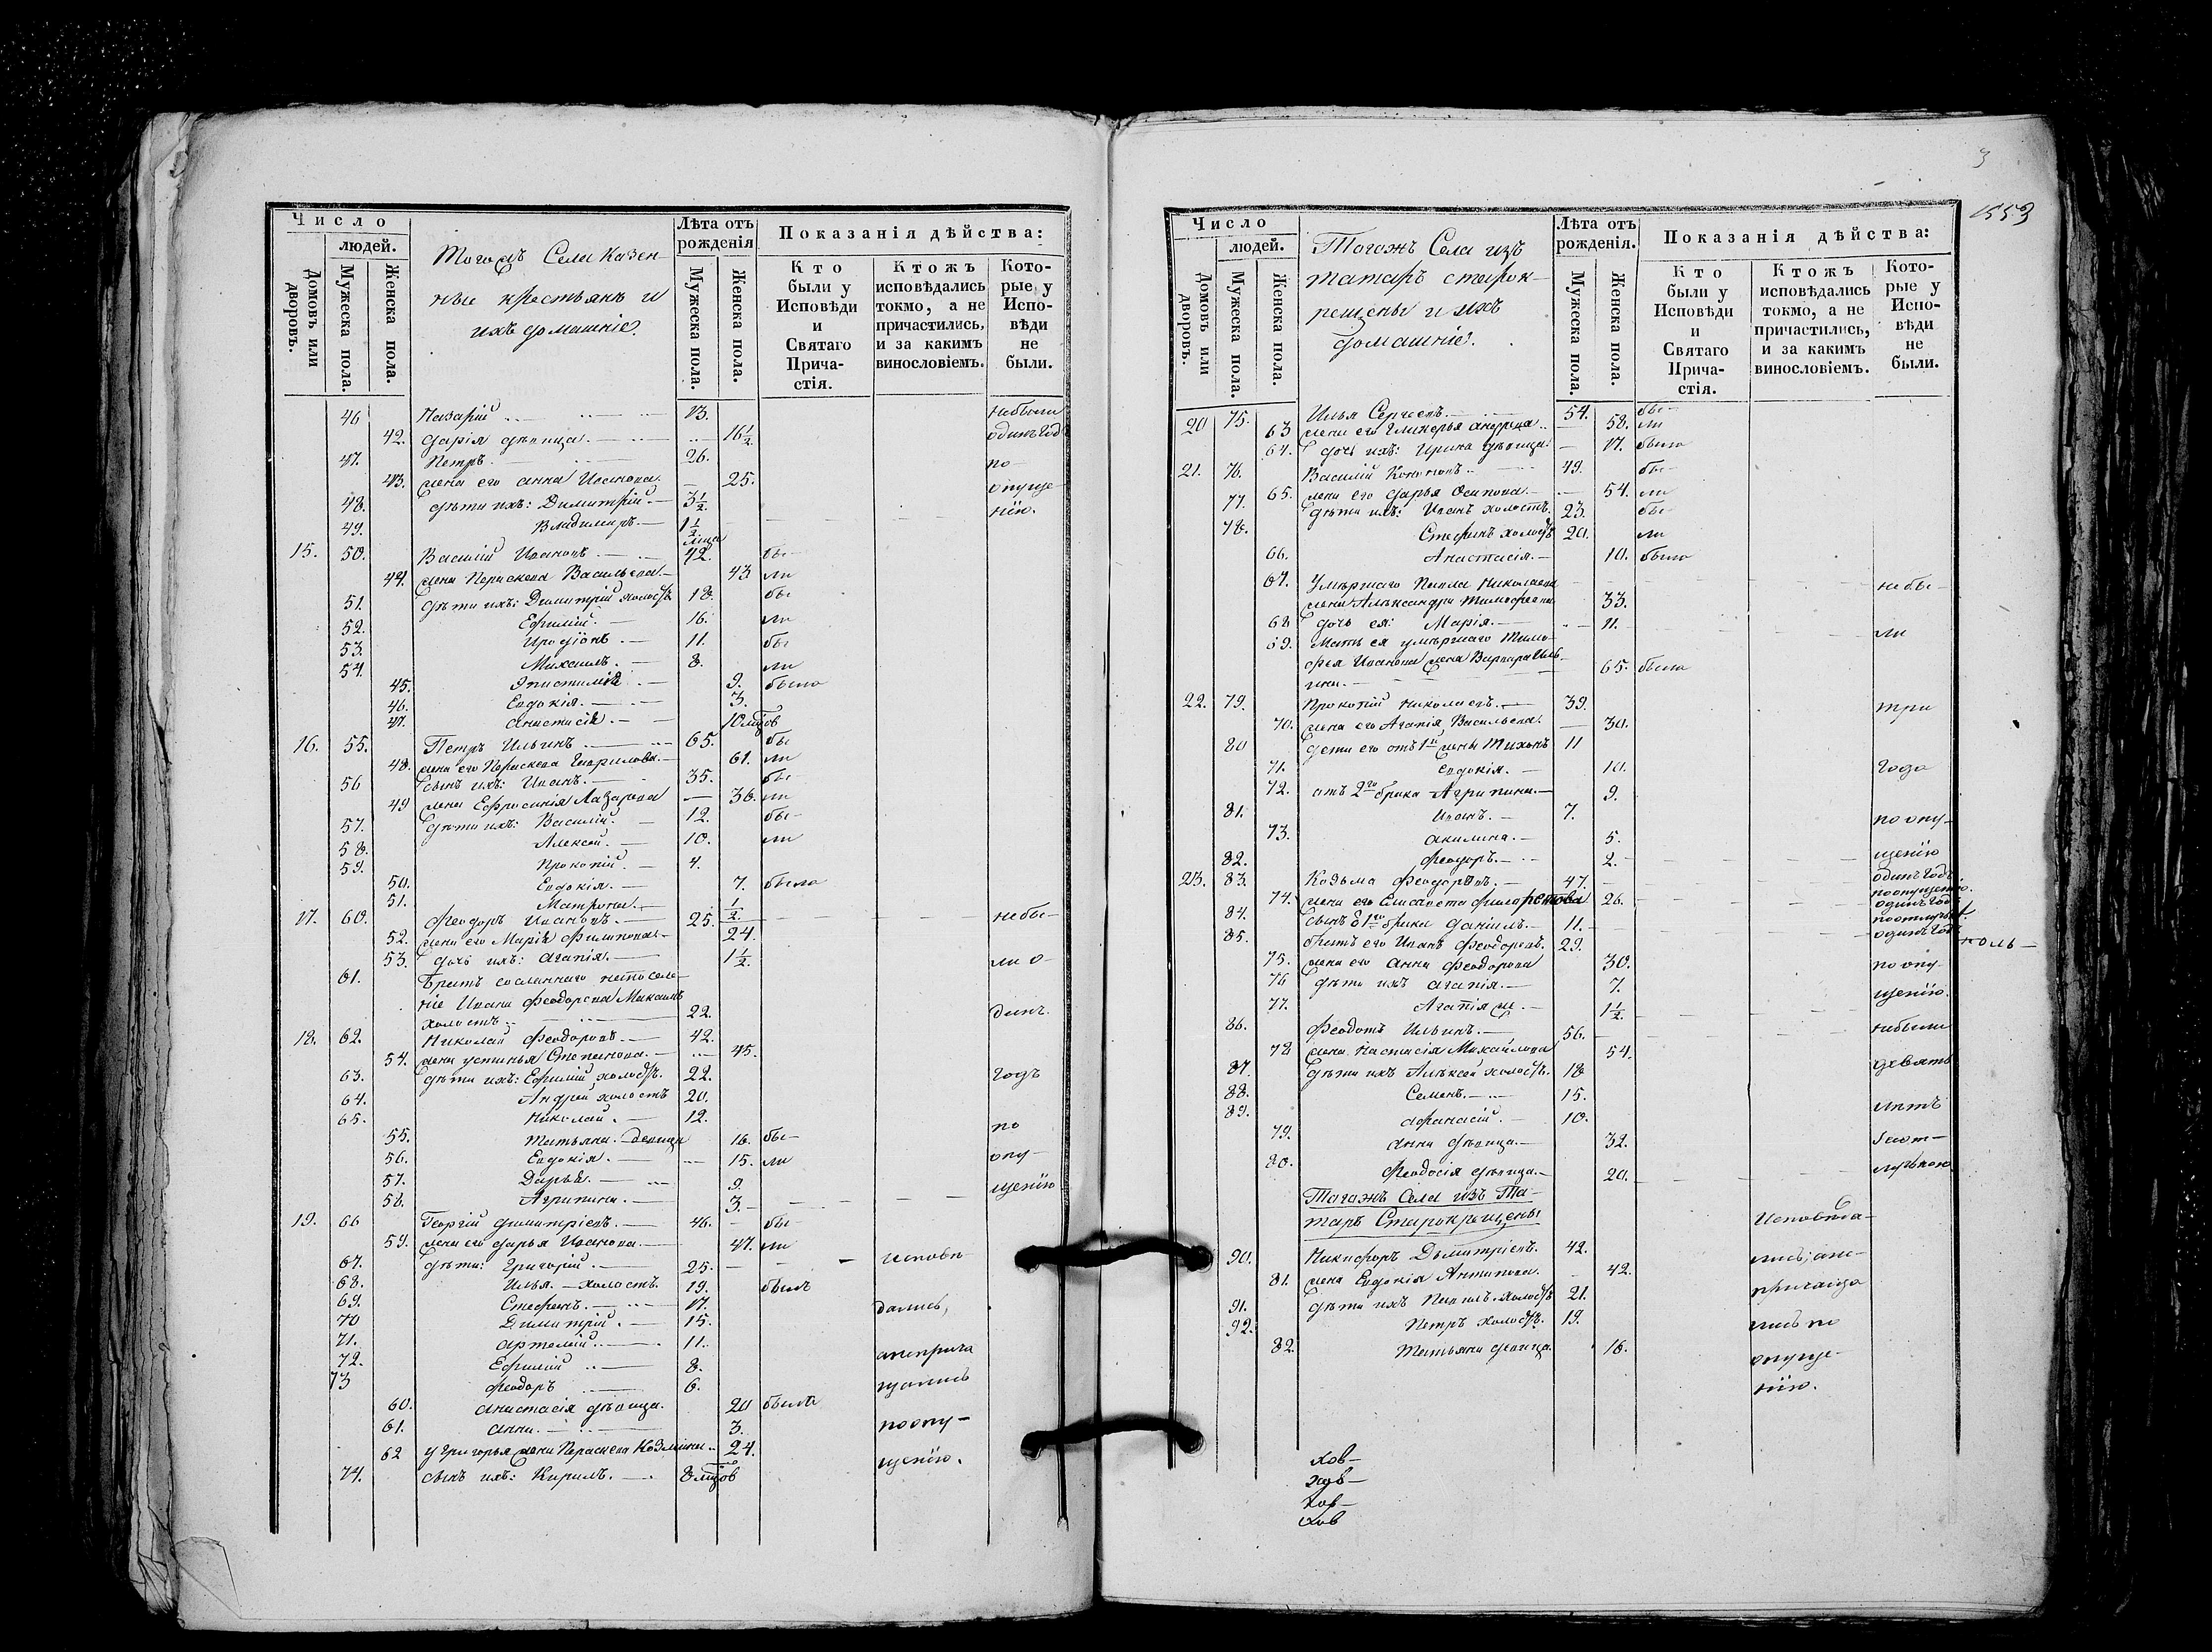 Число
людей.
Домовъ или дворовъ.
Мужеска пола.
Женска пола.
Тогожъ Села Казен-
ные крестьяне и
ихъ домашніе.
Лѣта отъ рожденія
Мужеска пола.
Женска пола.
Показанія дѣйства:
Кто были у Исповѣди и Святаго Прича-стія.
Ктожъ исповѣдались токмо, а не причастились, и за какимъ винословіемъ.
Кото-рые у Испо-вѣди не были.
46 Назарій 13. небыли
42. Дарія дѣвица. 16½. одинъ год
47. Петръ. 26. по
43. жена его Анна Иванова. 25. опуще-
48. дѣти ихъ: Димитрій. 3½. нію.
49. Владимиръ. 1½
15. 50. Василій Ивановъ 42. бы-
44. жена Параскева Васильева. 43 ли
51. дѣти ихъ: Димитрій холостъ 18. бы
52. Ефимій. 16. ли
53. Иродіонъ. 11. бы
54. Михаилъ. 8. ли
45. Епистимія. 9. была
46. Евдокія. 3.
47. Анастасія. 10 мцов
16. 55. Петръ Ильинъ 65. бы
48. жена его Параскева Гаврилова. 61. ли
56 Сынъ ихъ: Иванъ. 35. бы
49 жена Ефросинія Лазарева 36. ли
57. дѣти ихъ: Василій. 12. бы-
58. Алексей. 10. ли
59. Прокопій. 4.
50. Евдокія. 7. была
51. Матрона. ½
17. 60. Феодоръ Ивановъ. 25. небы-
52. жена его Марія Филипова 24.
53. дочь ихъ: Агапія. 1½. ли о-
61. Братъ сосланнаго на посѣле-
ніе Ивана Феодорова Михаилъ
холостъ 22. динъ
18. 62. Николай Феодоровъ. 42.
54. жена Устинья Степанова. 45.
63. дѣти ихъ: Ефимій холостъ. 22. годъ
64. Андрей холостъ 20.
65. Николай. 12. по
55. Татьяна. девица 16. бы-
56. Евдокія. 15. ли опу-
57. Дарья. 9. щенію
58. Агрипина. 3.
19. 66 Георгій Димитріевъ. 46. бы-
59. жена его Дарья Иванова. 47. ли
67. дѣти: Григорій. 25. исповѣ-
68. Илья. холостъ. 19. былъ
69. Стефанъ. 17. дались,
70 Димитрій. 15.
71. Артемій. 11. анеприча
72. Ефимій 8.
73 Феодоръ 6. щались
60. Анастасія дѣвица. 20 была
61. Анна. 3. поопу-
62 у Григорья жена Параскева Козмина 24.
74. сынъ ихъ: Кирилъ. 8 мцов щенію.
3
1553
Число
людей.
Домовъ или дворовъ.
Мужеска пола.
Женска пола.
Тогожъ Села изъ
татаръ старок-
рещены и ихъ
домашніе.
Лѣта отъ рожденія.
Мужеска пола.
Женска пола.
Показанія дѣйства:
Кто были у Исповѣди и Святаго Прича-стія.
Ктожъ исповѣдались токмо, а не причастились, и за какимъ винословіемъ.
Кото-рые у Испо-вѣди не были.
20 75. Илья Сергеевъ. 54. бы-
63 жена его Гликерья Андреева 58. ли
64. дочь ихъ: Ирина дѣвица 17. была
21. 76. Василій Кононовъ 49. бы-
65. жена его Дарья Осипова. 54. ли
77. дѣти ихъ: Иванъ холостъ. 23. бы-
78. Стефанъ холостъ 20. ли
66. Анастасія. 10. была
67. Умершаго Павла Николаева небы-
жена Александра Тимофеева 33.
68 дочь ея: Марія. 11. ли
69. Мать ея умершаго Тимо-
фея Иванова жена Варвара Иль-
ина. 65. была
22. 79. Прокопій Николаевъ. 39. три
70. жена его Агапія Васильева. 30.
80 Дети его отъ 1й жены Тихонъ 11
71. Евдокія. 10. года
72. отъ 2го брака Агрипина. 9.
81. Иванъ. 7. по опу-
73. Акилина. 5.
82. Феодоръ. 2. щенію
23. 83. Козьма Феодоровъ. 47. одинъ годъ поопущенію.
74. жена его Елисавета Филаретова 26. одинъ год
84. Сынъ 1го брака Даніилъ. 11.
85. братъ его Иванъ Феодоровъ. 29. одинъ год
75. жена его Анна Феодорова 30. по опу-
76 дѣти ихъ Агапія. 7. щенію.
77. Агапія же. 1½.
86. Феодотъ Ильинъ. 56. небыли
78 жена Настасія Михайлова 54. девять
87. дѣти ихъ Алексей холостъ. 18
88. Семенъ. 15. лѣтъ
89. Афанасій. 10.
79. Анна дѣвица. 32. заот-
80. Феодосія дѣвица. 20. лучкою
Тогожъ Села изъ Та-
таръ Старокрещены
Исповѣда-
90. Никифоръ Дьмитріевъ. 42. лись, ане-
81. жена Евдокія Антипова. 42. причаща
91. дѣти ихъ Павелъ холостъ 21.
92. Петръ холостъ. 19. лись по
82. Татьяна дѣвица. 16. опуще-
нію.